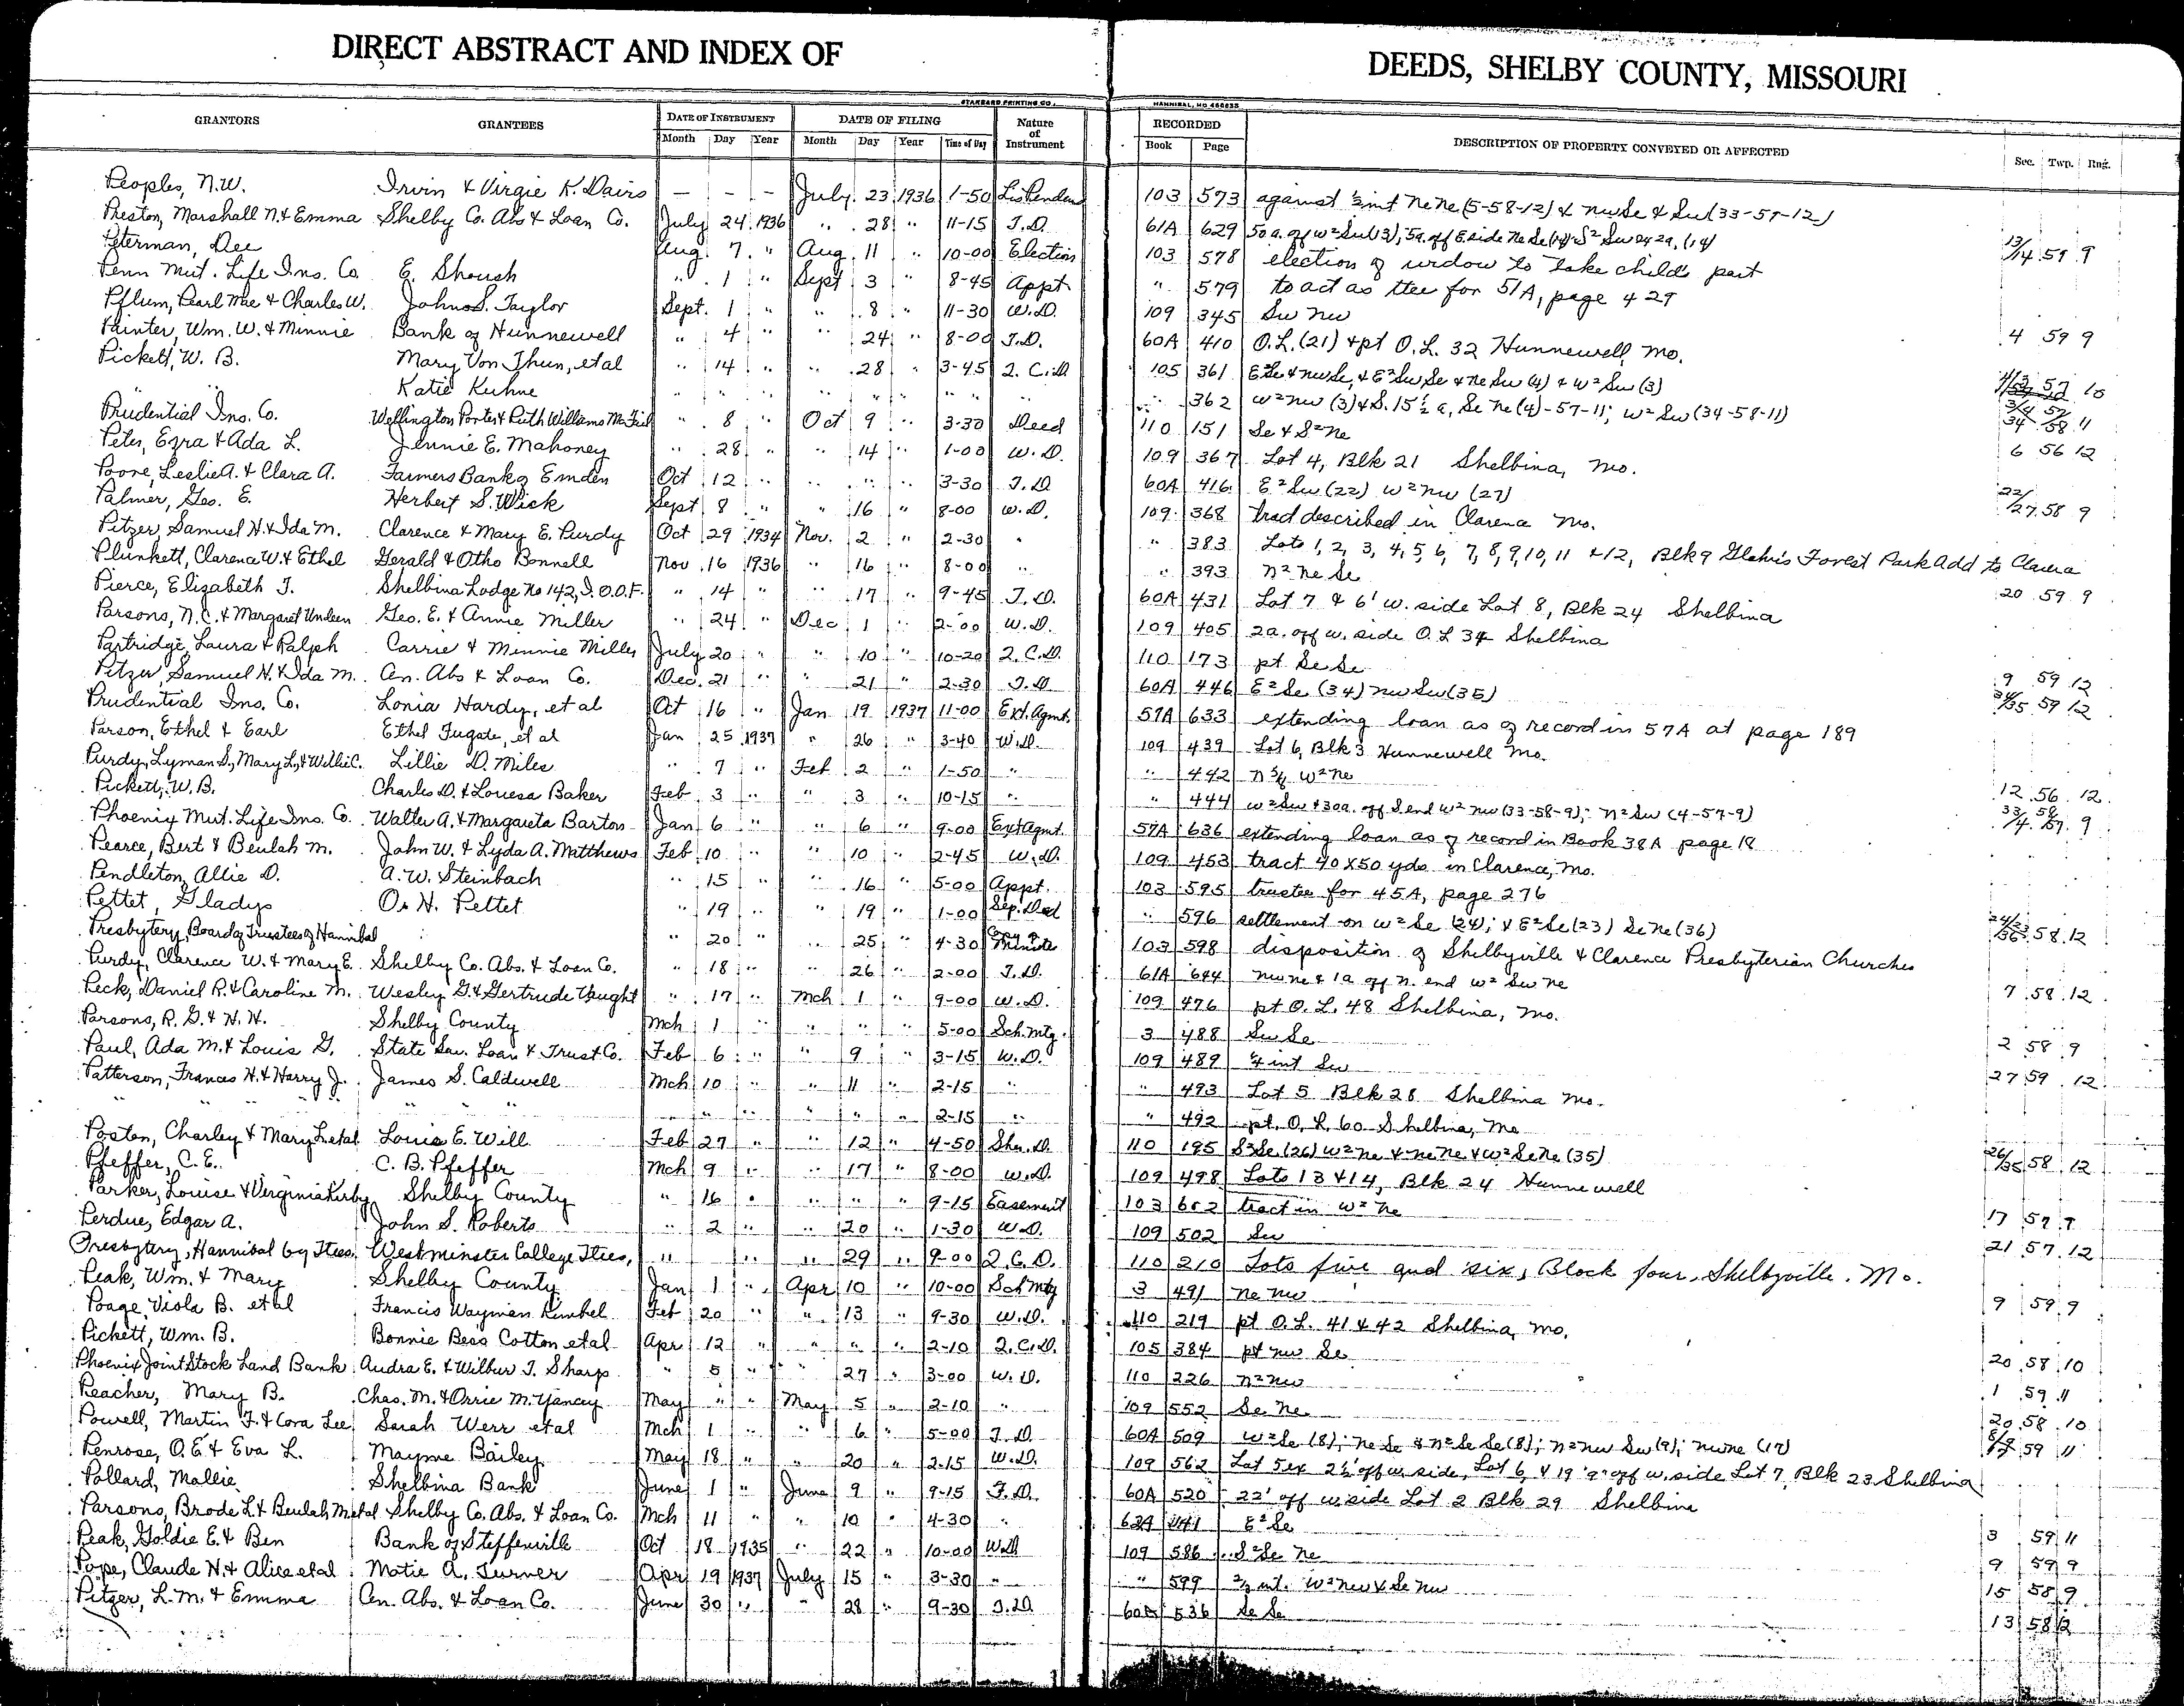 DIRECT ABSTRACT AND INDEX OF DEEDS, SHELBY COUNTY, MISSOURI
STANDARD PRINTING CO. HANNIBAL, MO
GRANTORS GRANTEES DATE OF INSTRUMENT DATE OF FILING Nature of Instrument RECORDED DESCRIPTION OF PROPERTY CONVEYED OR AFFECTED Sec. Twp. Rng.
Month Day Year Month Day Year Time of Day Book Page
Peoples, N.W. Irvin & Virgie K. Davis - - - July 23 1936 1-50 Lis Pendens 103 573 against ½ int NeNe (5-58-12) & NwSe & Sw (33-59-12)
Preston, Marshall N. & Emma Shelby Co. Abs & Loan Co. July 24 1936 " 28 " 11-15 T.D. 61A 629 50 a. off W² Sw (13); 5a. off E. side Ne Se (14) 13/14 59 9
Peterman, Dee Aug. 7 " Aug. 11 " 10-00 Election 103 578 election of widow to take child's part
Penn Mut. Life Ins. Co. E. Shoush " 1 " Sept 3 " 8-45 Appt. " 579 to act as ttee for 51A, page 429
Pflum, Pearl Mae & Charles W. John S. Taylor Sept. 1 " " 8 " 11-30 W.D. 109 345 Sw Nw 4 59 9
Painter, Wm. W. & Minnie Bank of Hunnewell " 4 " " 24 " 8-00 T.D. 60A 410 O.L. (21) & pt O.L. 32 Hunnewell Mo.
Pickett, W. B. Mary Von Thun, et al " 14 " " 28 " 3-45 Q.C.D. 105 361 E²Se & NwSe, & E² Sw Se & Ne Sw (4) & W² Sw (3) 57 10
" " Katie Kuhne " " " " " " " " " 362 W² Nw (3) & S. 15 ½ a, Se Ne (4)-57-11; W² Sw (34-58-11) 3/4 57 34 58 11
Prudential Ins. Co. Wellington Porter & Ruth Williams " 8 " Oct 9 " 3-30 Deed 110 151 Se & S² Ne 6 56 12
Peter, Ezra & Ada L. Jennie E. Mahoney " 28 " " 14 " 1-00 W.D. 109 367 Lot 4, Blk 21 Shelbina, Mo.
Poore, Leslie A. & Clara A. Farmers Bank of Emden Oct 12 " " " " 3-30 T.D. 60A 416 E² Sw (22) W² Nw (27) 22/27 58 9
Palmer, Geo. E. Herbert S. Wick Sept 8 " " 16 " 8-00 W.D. 109 368 tract described in Clarence Mo.
Pitzer, Samuel H. & Ida M. Clarence & Mary E. Purdy Oct 29 1934 Nov. 2 " 2-30 " " 383 Lots 1, 2, 3, 4, 5, 6, 7, 8, 9, 10, 11 & 12, Blk 9 Forest Park Add to
Plunkett, Clarence W. & Ethel Gerald & Otho Bonnell Nov 16 1936 " 16 " 8-00 " " 393 N² Ne Se 20 59 9
Pierce, Elizabeth T. Shelbina Lodge No 142, I.O.O.F. " 14 " " 17 " 9-45 T.D. 60A 431 Lot 7 & 6' W. side Lot 8, Blk 24 Shelbina
Parsons, N.C. & Margaret Geo. E. & Annie Miller " 24 " Dec 1 " 2-00 W.D. 109 405 2a. off W. side O.L 34 Shelbina
Partridge, Laura & Ralph Carrie & Minnie Miller July 20 " " 10 " 10-20 Q.C.D. 110 173 pt Se Se 9 59 12
Pitzer, Samuel H. & Ida M. Cen. Abs & Loan Co. Dec. 21 " " 21 " 2-30 T.D. 60A 446 E² Se (34) Nw Sw (35) 34/35 59 12
Prudential Ins. Co. Lonia Hardy, et al Oct 16 " Jan 19 1937 11-00 Ext. Agmt. 57A 633 extending loan as of record in 57A at page 189
Parson, Ethel & Earl Ethel Fugate, et al Jan 25 1937 " 26 " 3-40 W.D. 109 439 Lot 6, Blk 3 Hunnewell Mo.
Purdy, Lyman S., Mary L., & Willie C. Lillie D. Miles " 7 " Feb 2 " 1-50 " " 442 N ¾ W² Ne 12 56 12
Pickett, W.B. Charles D. & Louesa Baker Feb 3 " " 3 " 10-15 " " 444 W² Sw & 30a. off S. end W² Nw (33-58-9); N² Sw (4-57-9) 33 58 4 57 9
Phoenix Mut. Life Ins. Co. Walter A. & Margareta Barton Jan 6 " " 6 " 9-00 Ext Agmt. 57A 636 extending loan as of record in Book 38A page 18
Pearce, Bert & Beulah M. John W. & Lyda A. Matthews Feb 10 " " 10 " 2-45 W.D. 109 453 tract 40 X 50 yds in Clarence, Mo.
Pendleton, Allie D. A. W. Steinbach " 15 " " 16 " 5-00 Appt. 103 595 trustee for 45A, page 276
Pettet, Gladys O. H. Pettet " 19 " " 19 " 1-00 Sep. Deed " 596 settlement on W² Se (24); & E² Se (23) Se Ne (36) 24/23 36 58 12
Presbytery, Board of Trustees of Hannibal " 20 " " 25 " 4-30 Copy of Minute 103 598 disposition of Shelbyville & Clarence Presbyterian Churches
Purdy, Clarence W. & Mary E. Shelby Co. Abs. & Loan Co. " 18 " " 26 " 2-00 T.D. 61A 644 Nw Ne & 1a off N. end W² Sw Ne 7 58 12
Peck, Daniel R. & Caroline M. Wesley G. & Gertrude Vaught " 17 " Mch 1 " 9-00 W.D. 109 476 pt O.L. 48 Shelbina, Mo.
Parsons, R. G. & H. H. Shelby County Mch 1 " " " " 5-00 Sch. Mtg. 3 488 Sw Se 2 58 9
Paul, Ada M. & Louis G. State Sav. Loan & Trust Co. Feb 6 " " 9 " 3-15 W.D. 109 489 ¼ int Sw 27 59 12
Patterson, Frances H. & Harry J. James S. Caldwell Mch 10 " " 11 " 2-15 " " 493 Lot 5 Blk 28 Shelbina Mo.
" " " " " " " " " 2-15 " " 492 pt. O.L. 60 Shelbina, Mo
Poston, Charley & Mary L et al Louis E. Will Feb 27 " " 12 " 4-50 She. D. 110 195 S² Se (26) W² Ne & Ne Ne & W² Se Ne (35) 26/35 58 12
Pfeffer, C. E. C. B. Pfeffer Mch 9 " " 17 " 8-00 W.D. 109 498 Lots 13 & 14, Blk 24 Hunnewell
Parker, Louise & Virginia Kirby Shelby County " 16 " " " " 9-15 Easement 103 602 tract in W² Ne 17 57 9
Perdue, Edgar A. John S. Roberts " 2 " " 20 " 1-30 W.D. 109 502 Sw 21 57 12
Presbytery, Hannibal by Ttees. Westminster College Ttees, " " " 29 " 9-00 Q.C.D. 110 210 Lots five and six, Block four, Shelbyville, Mo.
Peak, Wm. & Mary Shelby County Jan 1 " Apr 10 " 10-00 Sch Mtg 3 491 Ne Nw 9 59 9
Poage, Viola B. et al Francis Wayman Kimbel Feb 20 " " 13 " 9-30 W.D. 110 219 pt O.L. 41 & 42 Shelbina, Mo.
Pickett, Wm. B. Bonnie Bess Cotton et al Apr 12 " " " " 2-10 Q.C.D. 105 384 pt Nw Se 20 58 10
Phoenix Joint Stock Land Bank Audra E. & Wilbur T. Sharp " 5 " " 27 " 3-00 W.D. 110 226 N² Nw 1 59 11
Peacher, Mary B. Chas. M. & Orrie M. Yancey May " " May 5 " 2-10 " 109 552 Se Ne 20 58 10
Powell, Martin F. & Cora Lee Sarah Werr et al Mch 1 " " 6 " 5-00 T.D. 60A 509 W² Se (8); Ne Se & N² Se Se (8); N² Nw Sw (9); Nw Ne (17) 8/9 17 59 11
Penrose, O.E. & Eva L. Mayme Bailey May 18 " " 20 " 2-15 W.D. 109 562 Lot 5 ex 2½' off W. side, Lot 6, & 19' 9" off W. side Lot 7, Blk 23 Shelbina
Pollard, Mallie Shelbina Bank June 1 " June 9 " 9-15 T.D. 60A 520 22' off W side Lot 2 Blk 29 Shelbina
Parsons, Brode L. & Beulah M et al Shelby Co. Abs. & Loan Co. Mch 11 " " 10 " 4-30 " 62A E² Se 3 59 11
Peak, Goldie E. & Ben Bank of Steffenville Oct 18 1935 " 22 " 10-00 W.D. 109 586 S² Se Ne 9 59 9
Pope, Claude H. & Alice et al Motie A. Turner Apr 19 1937 July 15 " 3-30 " " 599 ⅔ int. W² Nw & Se Nw 15 58 9
Pitzer, L. M. & Emma Cen. Abs. & Loan Co. June 30 " " 28 " 9-30 T.D. 60A 536 Se Se 13 58 12